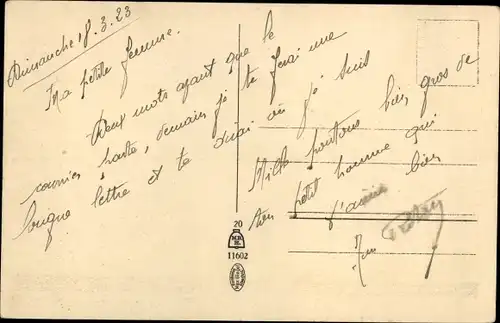 Dimanche 18.3.23
Ma petite femme.
Deux mots avant que le
courrier parte, demain je te ferai une
longue lettre et te dirai où je suis
Mille poutous bien gros de
ton petit homme qui
t'aime bien
20
11602